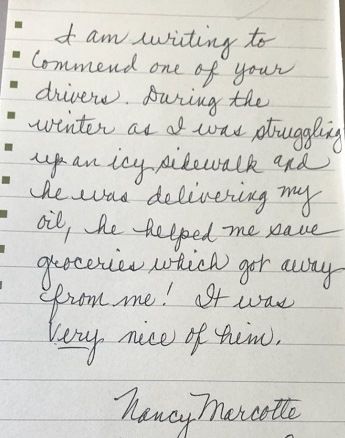 I am writing to
Commend one of your
drivers. During the
winter as I was struggling
up an icy sidewalk and
he was delivering my
oil, he helped me save
groceries which got away
from me! It was
Very nice of him.
Nancy Marcotte